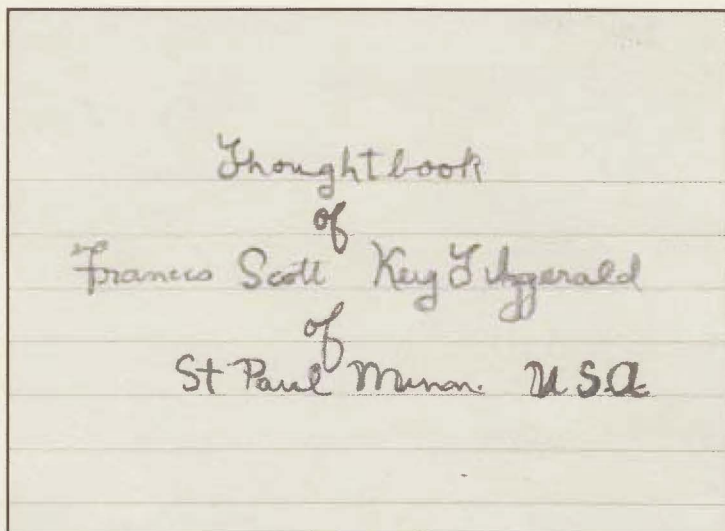 Thoughtbook
of
Francis Scott Key Fitzgerald
of
St Paul Minn. U.S.A.